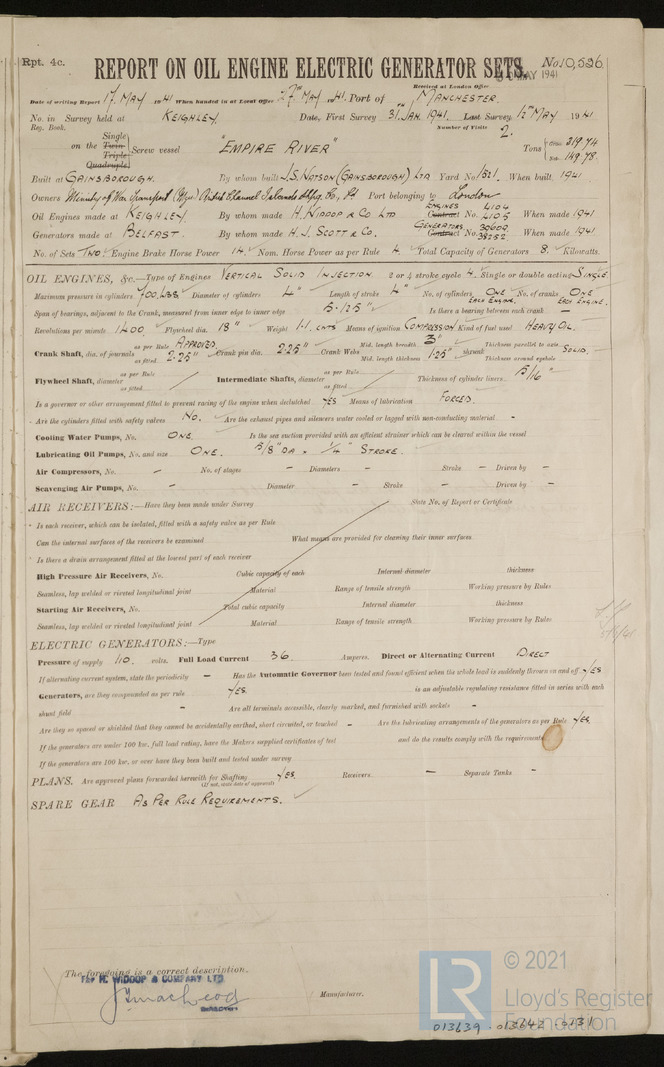 Rpt. 4c.
REPORT ON OIL ENGINE ELECTRIC GENERATOR SETS. No. 10,526
MAY 1941
Received at London Office
Date of writing Report 17. MAY. 1941 When handed in at Local Office 27TH MAY 1941. Port of MANCHESTER.
No. in Survey held at KEIGHLEY. Date, First Survey 31. JAN. 1941. Last Survey 12TH MAY 1941
Reg. Book. Number of Visits 2.
on the Single Twin Triple Quadruple Screw vessel "EMPIRE RIVER" Tons Gross 319.74 Net 149.78.
Built at GAINSBOROUGH. By whom built J.S. WATSON (GAINSBOROUGH) LTD Yard No. 1521. When built 1941
Owners Ministry of War Transport Port belonging to London
Oil Engines made at KEIGHLEY. By whom made H. WIDDOP & CO LTD ENGINES Contract No. 4104 4105 When made 1941
Generators made at BELFAST. By whom made H. J. SCOTT & CO. GENERATORS Contract No. 39609. 38252. When made 1941
No. of Sets TWO. Engine Brake Horse Power 14. Nom. Horse Power as per Rule 4. Total Capacity of Generators 8. Kilowatts.
OIL ENGINES, &c.—Type of Engines VERTICAL SOLID INJECTION. 2 or 4 stroke cycle 4. Single or double acting SINGLE.
Maximum pressure in cylinders 700 LBS Diameter of cylinders 4" Length of stroke 4" No. of cylinders ONE EACH ENGINE. No. of cranks ONE EACH ENGINE.
Span of bearings, adjacent to the Crank, measured from inner edge to inner edge 5.125" Is there a bearing between each crank -
Revolutions per minute 1400. Flywheel dia. 18" Weight 1.1. CWTS Means of ignition COMPRESSION Kind of fuel used HEAVY OIL.
Crank Shaft, dia. of journals as per Rule APPROVED. as fitted 2.25" Crank pin dia. 2.25" Crank Webs Mid. length breadth 3" Mid. length thickness 1.25" shrunk Thickness parallel to axis Thickness around eyehole SOLID.
Flywheel Shaft, diameter as per Rule as fitted Intermediate Shafts, diameter as per Rule as fitted Thickness of cylinder liners 5/16"
Is a governor or other arrangement fitted to prevent racing of the engine when declutched YES Means of lubrication FORCED.
Are the cylinders fitted with safety valves NO. Are the exhaust pipes and silencers water cooled or lagged with non-conducting material -
Cooling Water Pumps, No. ONE. Is the sea suction provided with an efficient strainer which can be cleared within the vessel
Lubricating Oil Pumps, No. and size ONE. 5/8" DA × 1/4" STROKE.
Air Compressors, No. - No. of stages - Diameters - Stroke - Driven by -
Scavenging Air Pumps, No. - Diameter - Stroke - Driven by -
AIR RECEIVERS:—Have they been made under Survey State No. of Report or Certificate
Is each receiver, which can be isolated, fitted with a safety valve as per Rule
Can the internal surfaces of the receivers be examined What means are provided for cleaning their inner surfaces
Is there a drain arrangement fitted at the lowest part of each receiver
High Pressure Air Receivers, No. Cubic capacity of each Internal diameter thickness
Seamless, lap welded or riveted longitudinal joint Material Range of tensile strength Working pressure by Rules
Starting Air Receivers, No. Total cubic capacity Internal diameter thickness
Seamless, lap welded or riveted longitudinal joint Material Range of tensile strength Working pressure by Rules
ELECTRIC GENERATORS:—Type
Pressure of supply 110. volts. Full Load Current 36. Amperes. Direct or Alternating Current DIRECT
If alternating current system, state the periodicity - Has the Automatic Governor been tested and found efficient when the whole load is suddenly thrown on and off YES
Generators, are they compounded as per rule YES. is an adjustable regulating resistance fitted in series with each
shunt field - Are all terminals accessible, clearly marked, and furnished with sockets -
Are they so spaced or shielded that they cannot be accidentally earthed, short circuited, or touched - Are the lubricating arrangements of the generators as per Rule YES.
If the generators are under 100 kw. full load rating, have the Makers supplied certificates of test and do the results comply with the requirements
If the generators are 100 kw. or over have they been built and tested under survey
PLANS. Are approved plans forwarded herewith for Shafting YES. Receivers - Separate Tanks -
(If not, state date of approval)
SPARE GEAR AS PER RULE REQUIREMENTS.
The foregoing is a correct description.
For H. WIDDOP & COMPANY LTD
Manufacturer.
LR
© 2021
Lloyd's Register
Foundation
013639 - 013642 - 0131